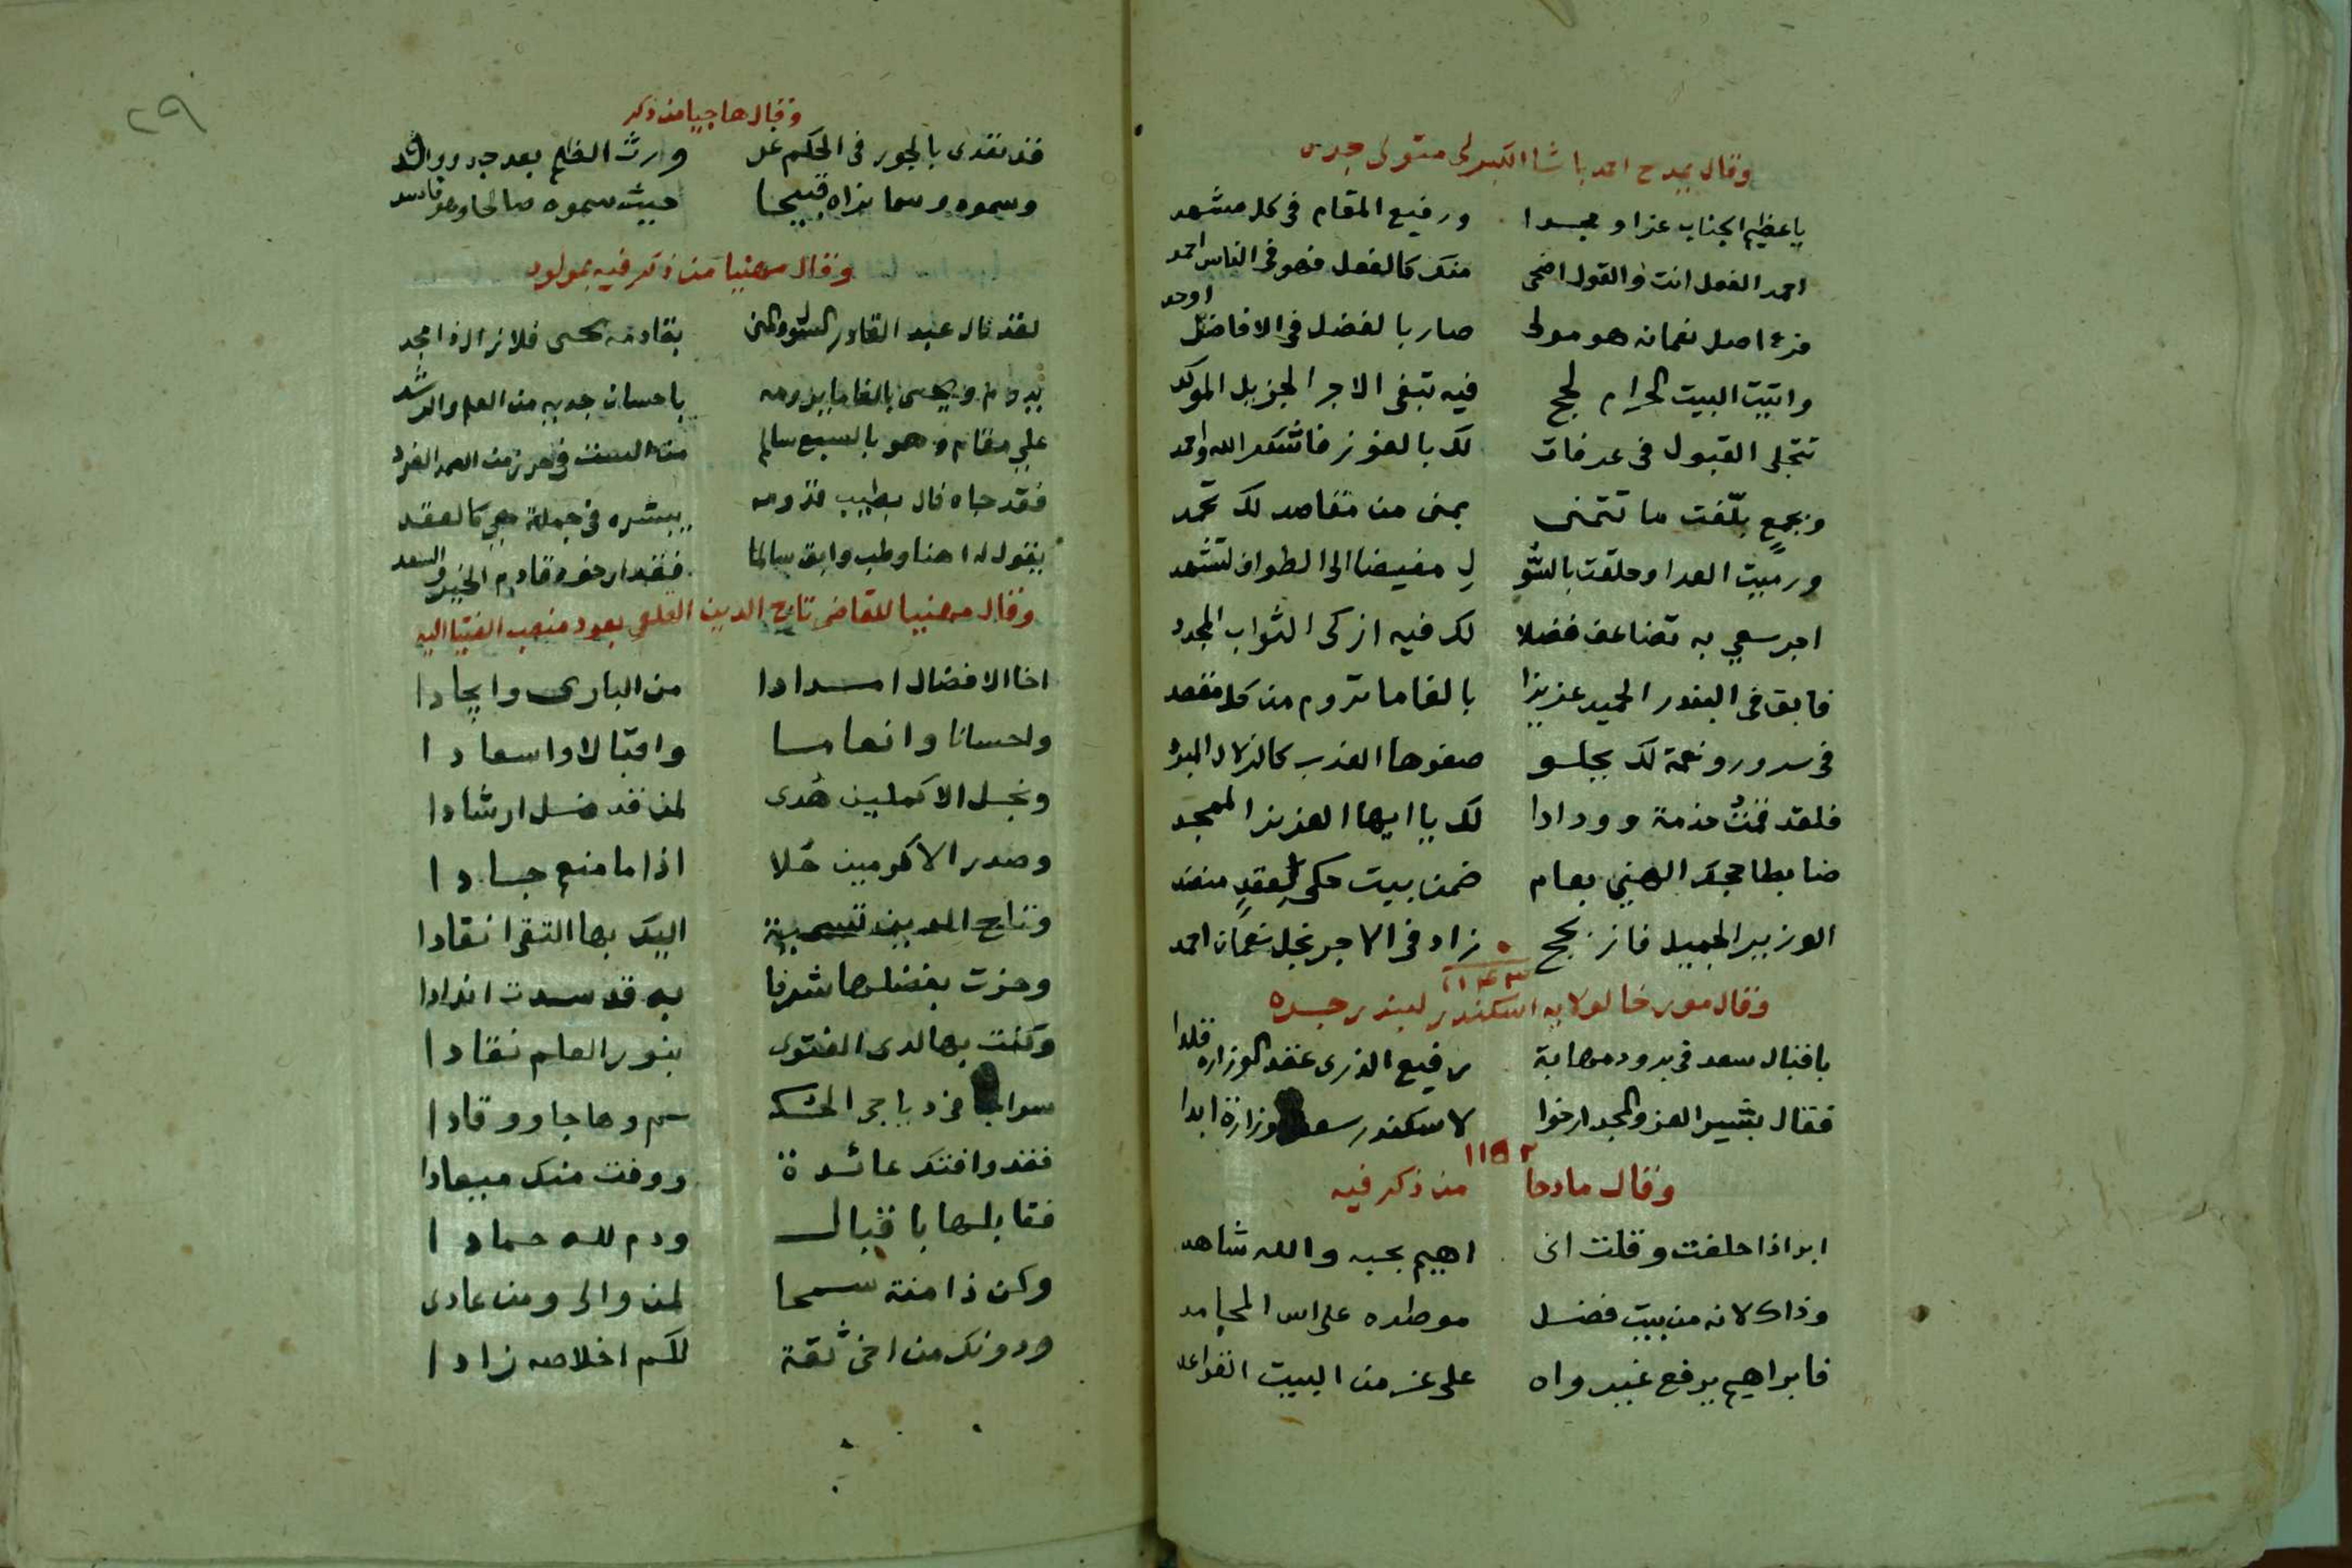 وقال يمدح احمد باشا الكبرلى متولى جده
يا عظيم الجناب عزا ومجدا ورفيع المقام فى كل مشهد
احمد الفعل انت والقول اضحى منك كالفعل فهو فى الناس احمد
فرع اصل نعمانه هو مولى صار بالفضل فى الافاضل اوحد
واتيت البيت الحرام لحج فيه تبغى الاجر الجزيل الموكد
تتجلى القبول فى عرفات لك بالفوز فاشكر الله واحمد
وبجمع بلّغت ما تتمنى بمنى من مقاصد لك تحمد
ورميت العدا وحلقت بالسُّو لِ مفيضا الى الطواف لتشهد
اجر سعي به تضاعف فضلا لك فيه ازكى الثواب المجدد
فابق فى البندر الحميد عزيزا بالغا ما تروم من كل مقصد
فى سرور ونعمة لك يجلو صفوها العذب كالزلال المبرد
فلقد قمتُ خدمة وودادا لك يا ايها العزيز الممجد
ضابطا حجك الهني بعام ضمن بيت حكى لعقدٍ منضد
الوزير الجميل فاز بحج زاد فى الاجر نجل نعمان احمد
١١٤٣
وقال مورخا لولايه اسكندر لبندر جده
باقبال سعد فى برود مهابة رفيع الذرى عقد الوزاره قلدا
فقال بشير العز والمجد ارخوا لاسكندر سعد وزارة ابدا
١١٥٢
وقال مادحا من ذكر فيه
ابر اذا حلفت وقلت انى اهيم بحبه والله شاهد
وذاك لانه من بيت فضل موطده على اس المحامد
فابراهيم يرفع غير واه على عز من البيت القواعد
٢٩
وقال هاجيا من ذكر
قد تعدى بالجور فى الحكم عن ورث الظلم بعد جد ووالد
وسموه وسما نراه قبيحا حيث سموه صالحا وهو فاسد
وقال مهنيا من ذكر فيه بمولود
لقد نال عبد القادر السؤل والمنى بقادمه يحيى فلا زال ذا مجد
يدوم ويحيى بالغا ما يرومه باحسان جديه من العلم والرشد
علي مقام وهو بالسبع سالم من الست فى حرز من الصمد الفرد
فقد جاه فال بطيب قدومه يبشره فى جملة هي كالعقد
يقول له اهنا وطب وابق سالما فقد ارخوه قادم الخير والسعد
وقال مهنيا للقاضى تاج الدين القلعى بعود منصب الفتيا اليه
اخا الافضال امدادا من البارى وايجادا
واحسانا وانعاما واقبالا واسعادا
ونجل الاكملين هُدى لمن قد ضل ارشادا
وصدر الاكرمين حُلا اذا ما منع جادا
وتاج الدين تسمية اليك بها التقى انقادا
وحزت بفضلها شرفا به قد سدت اندادا
وكنت بها لدى الفتوى بنور العلم نقادا
فقد وافتك عائدة ووفت منك ميعادا
فقابلها باقبال ودم لله حمادا
وكن ذا منة سمحا لمن والى ومن عادى
ودونك من اخى ثقة لكم اخلاصه زادا